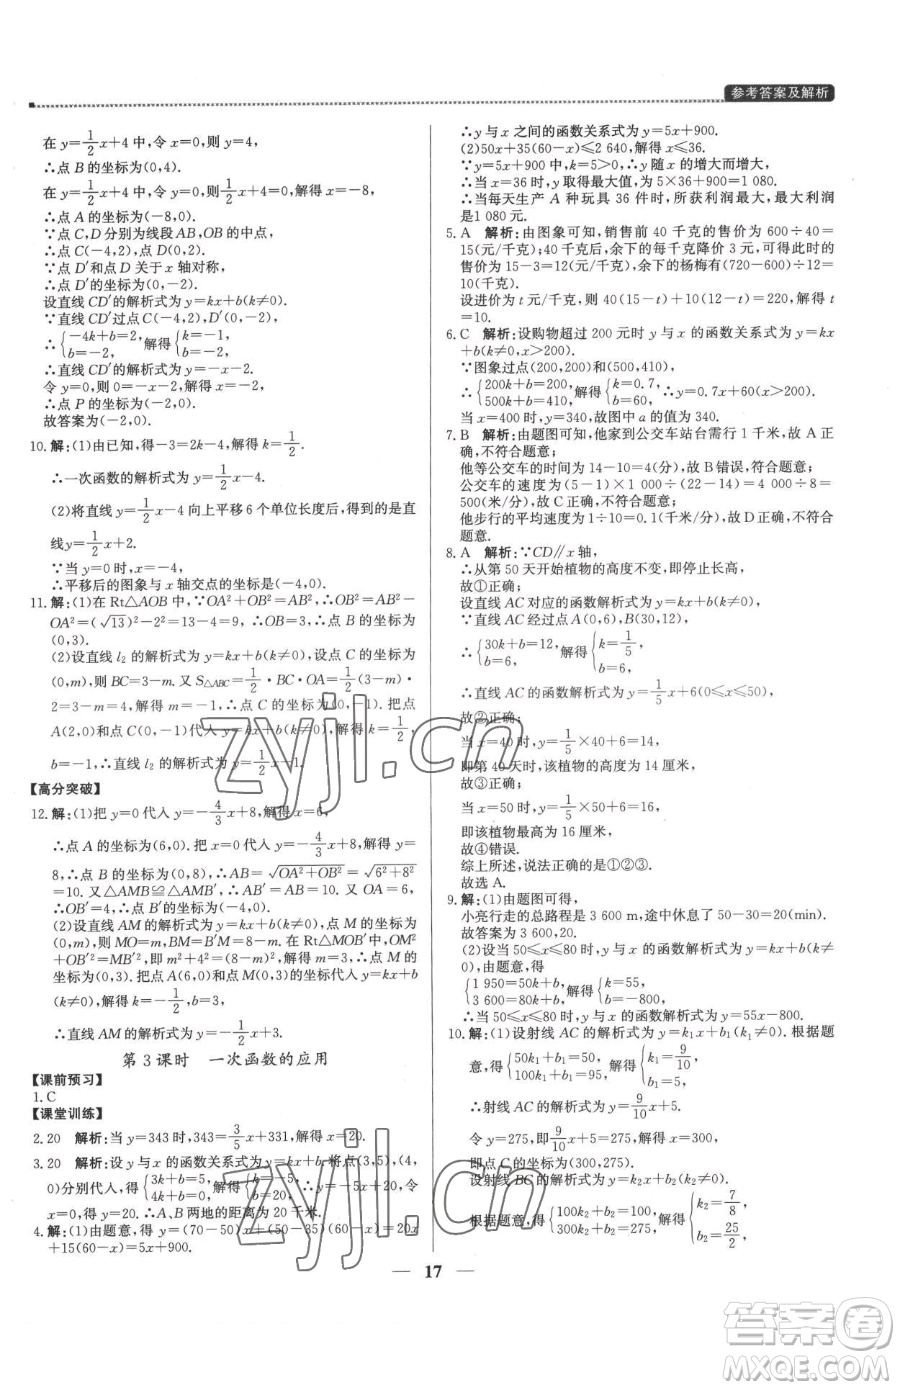 参考答案及解析
在 y=1/2x+4 中,令 x=0,则 y=4.
∴点 B 的坐标为(0,4).
在 y=1/2x+4 中,令 y=0,则1/2x+4=0,解得 x=-8,
∴点 A 的坐标为(-8,0).
∵点 C,D 分别为线段 AB,OB 的中点,
∴点 C(-4,2),点 D(0,2).
∵点 D′和点 D 关于 x 轴对称,
∴点 D′的坐标为(0,-2).
设直线 CD′的解析式为 y=kx+b(k≠0).
∵直线 CD′过点 C(-4,2),D′(0,-2),
∴{-4k+b=2, b=-2, 解得{k=-1, b=-2.
∴直线 CD′的解析式为 y=-x-2.
令 y=0,则 0=-x-2,解得 x=-2,
∴点 P 的坐标为(-2,0).
故答案为(-2,0).
10.解:(1)由已知,得-3=2k-4,解得 k=1/2.
∴一次函数的解析式为 y=1/2x-4.
(2)将直线 y=1/2x-4 向上平移 6 个单位长度后,得到的是直
线 y=1/2x+2.
∵当 y=0 时,x=-4,
∴平移后的图象与 x 轴交点的坐标是(-4,0).
11.解:(1)在 Rt△AOB 中,∵OA²+OB²=AB²,∴OB²=AB²-
OA²=(√13)²-2²=13-4=9,∴OB=3,∴点 B 的坐标为
(0,3).
(2)设直线 l₂ 的解析式为 y=kx+b(k≠0),设点 C 的坐标为
(0,m),则 BC=3-m. 又 S△ABC=1/2·BC·OA=1/2(3-m)·
2=3-m=4,解得 m=-1,∴点 C 的坐标为(0,-1). 把点
A(2,0)和点 C(0,-1)代入 y=kx+b(k≠0),解得 k=1/2,
b=-1,∴直线 l₂ 的解析式为 y=1/2x-1.
【高分突破】
12.解:(1)把 y=0 代入 y=-4/3x+8,解得 x=6,
∴点 A 的坐标为(6,0). 把 x=0 代入 y=-4/3x+8,解得 y=
8,∴点 B 的坐标为(0,8),∴AB=√OA²+OB²=√6²+8²
=10. 又∵△AMB≌△AMB′,∴AB′=AB=10. 又∵OA=6,
∴OB′=4,∴点 B′的坐标为(-4,0).
(2)设直线 AM 的解析式为 y=kx+b(k≠0),点 M 的坐标为
(0,m),则 MO=m,BM=B′M=8-m. 在 Rt△MOB′中,OM²
+OB′²=MB′²,即 m²+4²=(8-m)²,解得 m=3,∴点 M 的
坐标为(0,3). 把点 A(6,0)和点M(0,3)的坐标代入 y=kx+b
(k≠0),解得 k=-1/2,b=3,
∴直线 AM 的解析式为 y=-1/2x+3.
第 3 课时 一次函数的应用
【课前预习】
1.C
【课堂训练】
2.20 解析:当 y=343 时,343=3/5x+331,解得 x=20.
3.20 解析:设 y 与 x 的函数关系式为 y=kx+b,将点(3,5),(4,
0)分别代入,得{3k+b=5, 4k+b=0, 解得{k=-5, b=20. ∴y=-5x+20. 令
x=0,得 y=20. ∴A,B 两地的距离为 20 千米.
4.解:(1)由题意,得 y=(70-50)x+(50-35)(60-x)=20x
+15(60-x)=5x+900.
∴y 与 x 之间的函数关系式为 y=5x+900.
(2)50x+35(60-x)≤2 640,解得 x≤36.
∵y=5x+900 中,k=5>0,∴y 随 x 的增大而增大,
∴当 x=36 时,y 取得最大值,为 5×36+900=1 080.
∴当每天生产 A 种玩具 36 件时,所获利润最大,最大利润
是1 080 元.
5.A 解析:由图象可知,销售前 40 千克的售价为 600÷40=
15(元/千克);40 千克后,余下的每千克降价 3 元,可得此时的
售价为 15-3=12(元/千克),余下的杨梅有(720-600)÷12=
10(千克).
设进价为 t 元/千克,则 40(15-t)+10(12-t)=220,解得 t
=10.
6.C 解析:设购物超过 200 元时 y 与 x 的函数关系式为 y=kx
+b(k≠0,x>200).
∵图象过点(200,200)和(500,410),
∴{200k+b=200, 500k+b=410, 解得{k=0.7, b=60. ∴y=0.7x+60(x>200).
当 x=400 时,y=340,故图中 a 的值为 340.
7.B 解析:由题图可知,他家到公交车站台需行 1 千米,故 A 正
确,不符合题意;
他等公交车的时间为 14-10=4(分),故 B错误,符合题意;
公交车的速度为(5-1)×1 000÷(22-14)=4 000÷8=
500(米/分),故 C 正确,不符合题意;
他步行的平均速度为 1÷10=0.1(千米/分),故 D正确,不符合
题意.
8.A 解析:∵CD∥x 轴,
∴从第 50 天开始植物的高度不变,即已停止长高,
故①正确;
设直线 AC 对应的函数解析式为 y=kx+b(k≠0),
∵直线 AC 经过点 A(0,6),B(30,12),
∴{30k+b=12, b=6, 解得{k=1/5, b=6,
∴直线 AC 的函数解析式为 y=1/5x+6(0≤x≤50),
故②正确;
当 x=40 时,y=1/5×40+6=14,
即第 40 天时,该植物的高度为 14 厘米,故③正确;
当 x=50 时,y=1/5×50+6=16,
即该植物最高为 16 厘米,
故④错误.
综上所述,说法正确的是①②③.
故选 A.
9.解:(1)由题图可得,
小亮行走的总路程是 3 600 m,途中休息了 50-30=20(min).
故答案为 3 600,20.
(2)设当 50≤x≤80 时,y 与 x 的函数关系式为 y=kx+b(k≠
0),由题意,得
{1 950=50k+b, 3 600=80k+b, 解得{k=55, b=-800,
∴当 50≤x≤80 时,y 与 x 的函数关系式为 y=55x-800.
10.解:(1)设射线 AC 的解析式为 y=k₁x+b₁(k₁≠0). 根据题
意,得{50k₁+b₁=50, 100k₁+b₁=95, 解得{k₁=9/10, b₁=5.
∴射线 AC 的解析式为 y=9/10x+5.
令 y=275,即9/10x+5=275,解得 x=300,
即点 C 的坐标为(300,275).
设射线 BC 的解析式为 y=k₂x+b₂(k₂≠0).
根据题意,得{100k₂+b₂=100, 300k₂+b₂=275, 解得{k₂=7/8, b₂=25/2,
17
zyjl.cn
zyjl.cn
答案圈
MXQE.COM